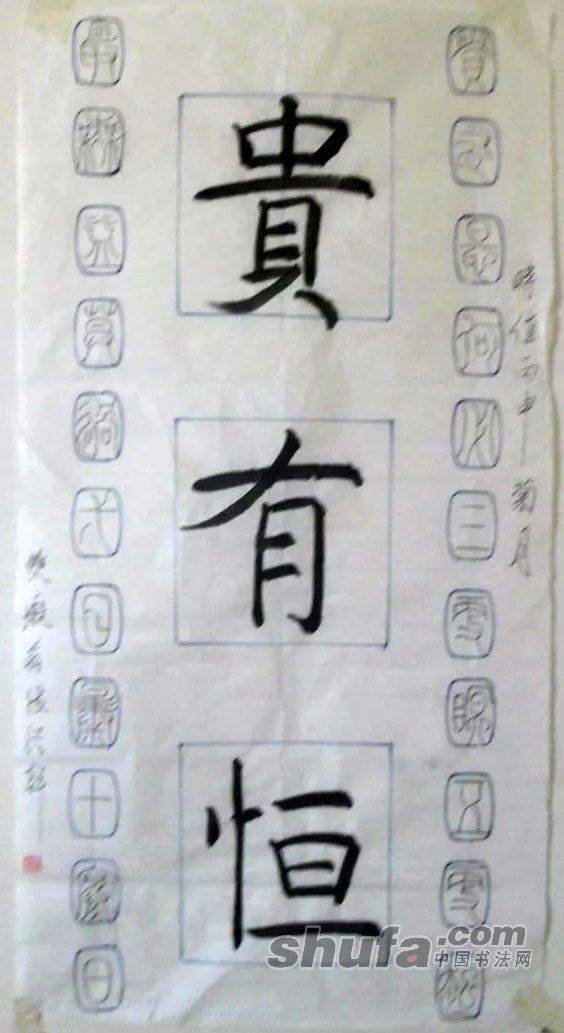 時值丙申菊月
貴有恒何必三更眠五更起
貴有恒
最無益莫過弌日曝十寒日
shufa.com
中国书法网